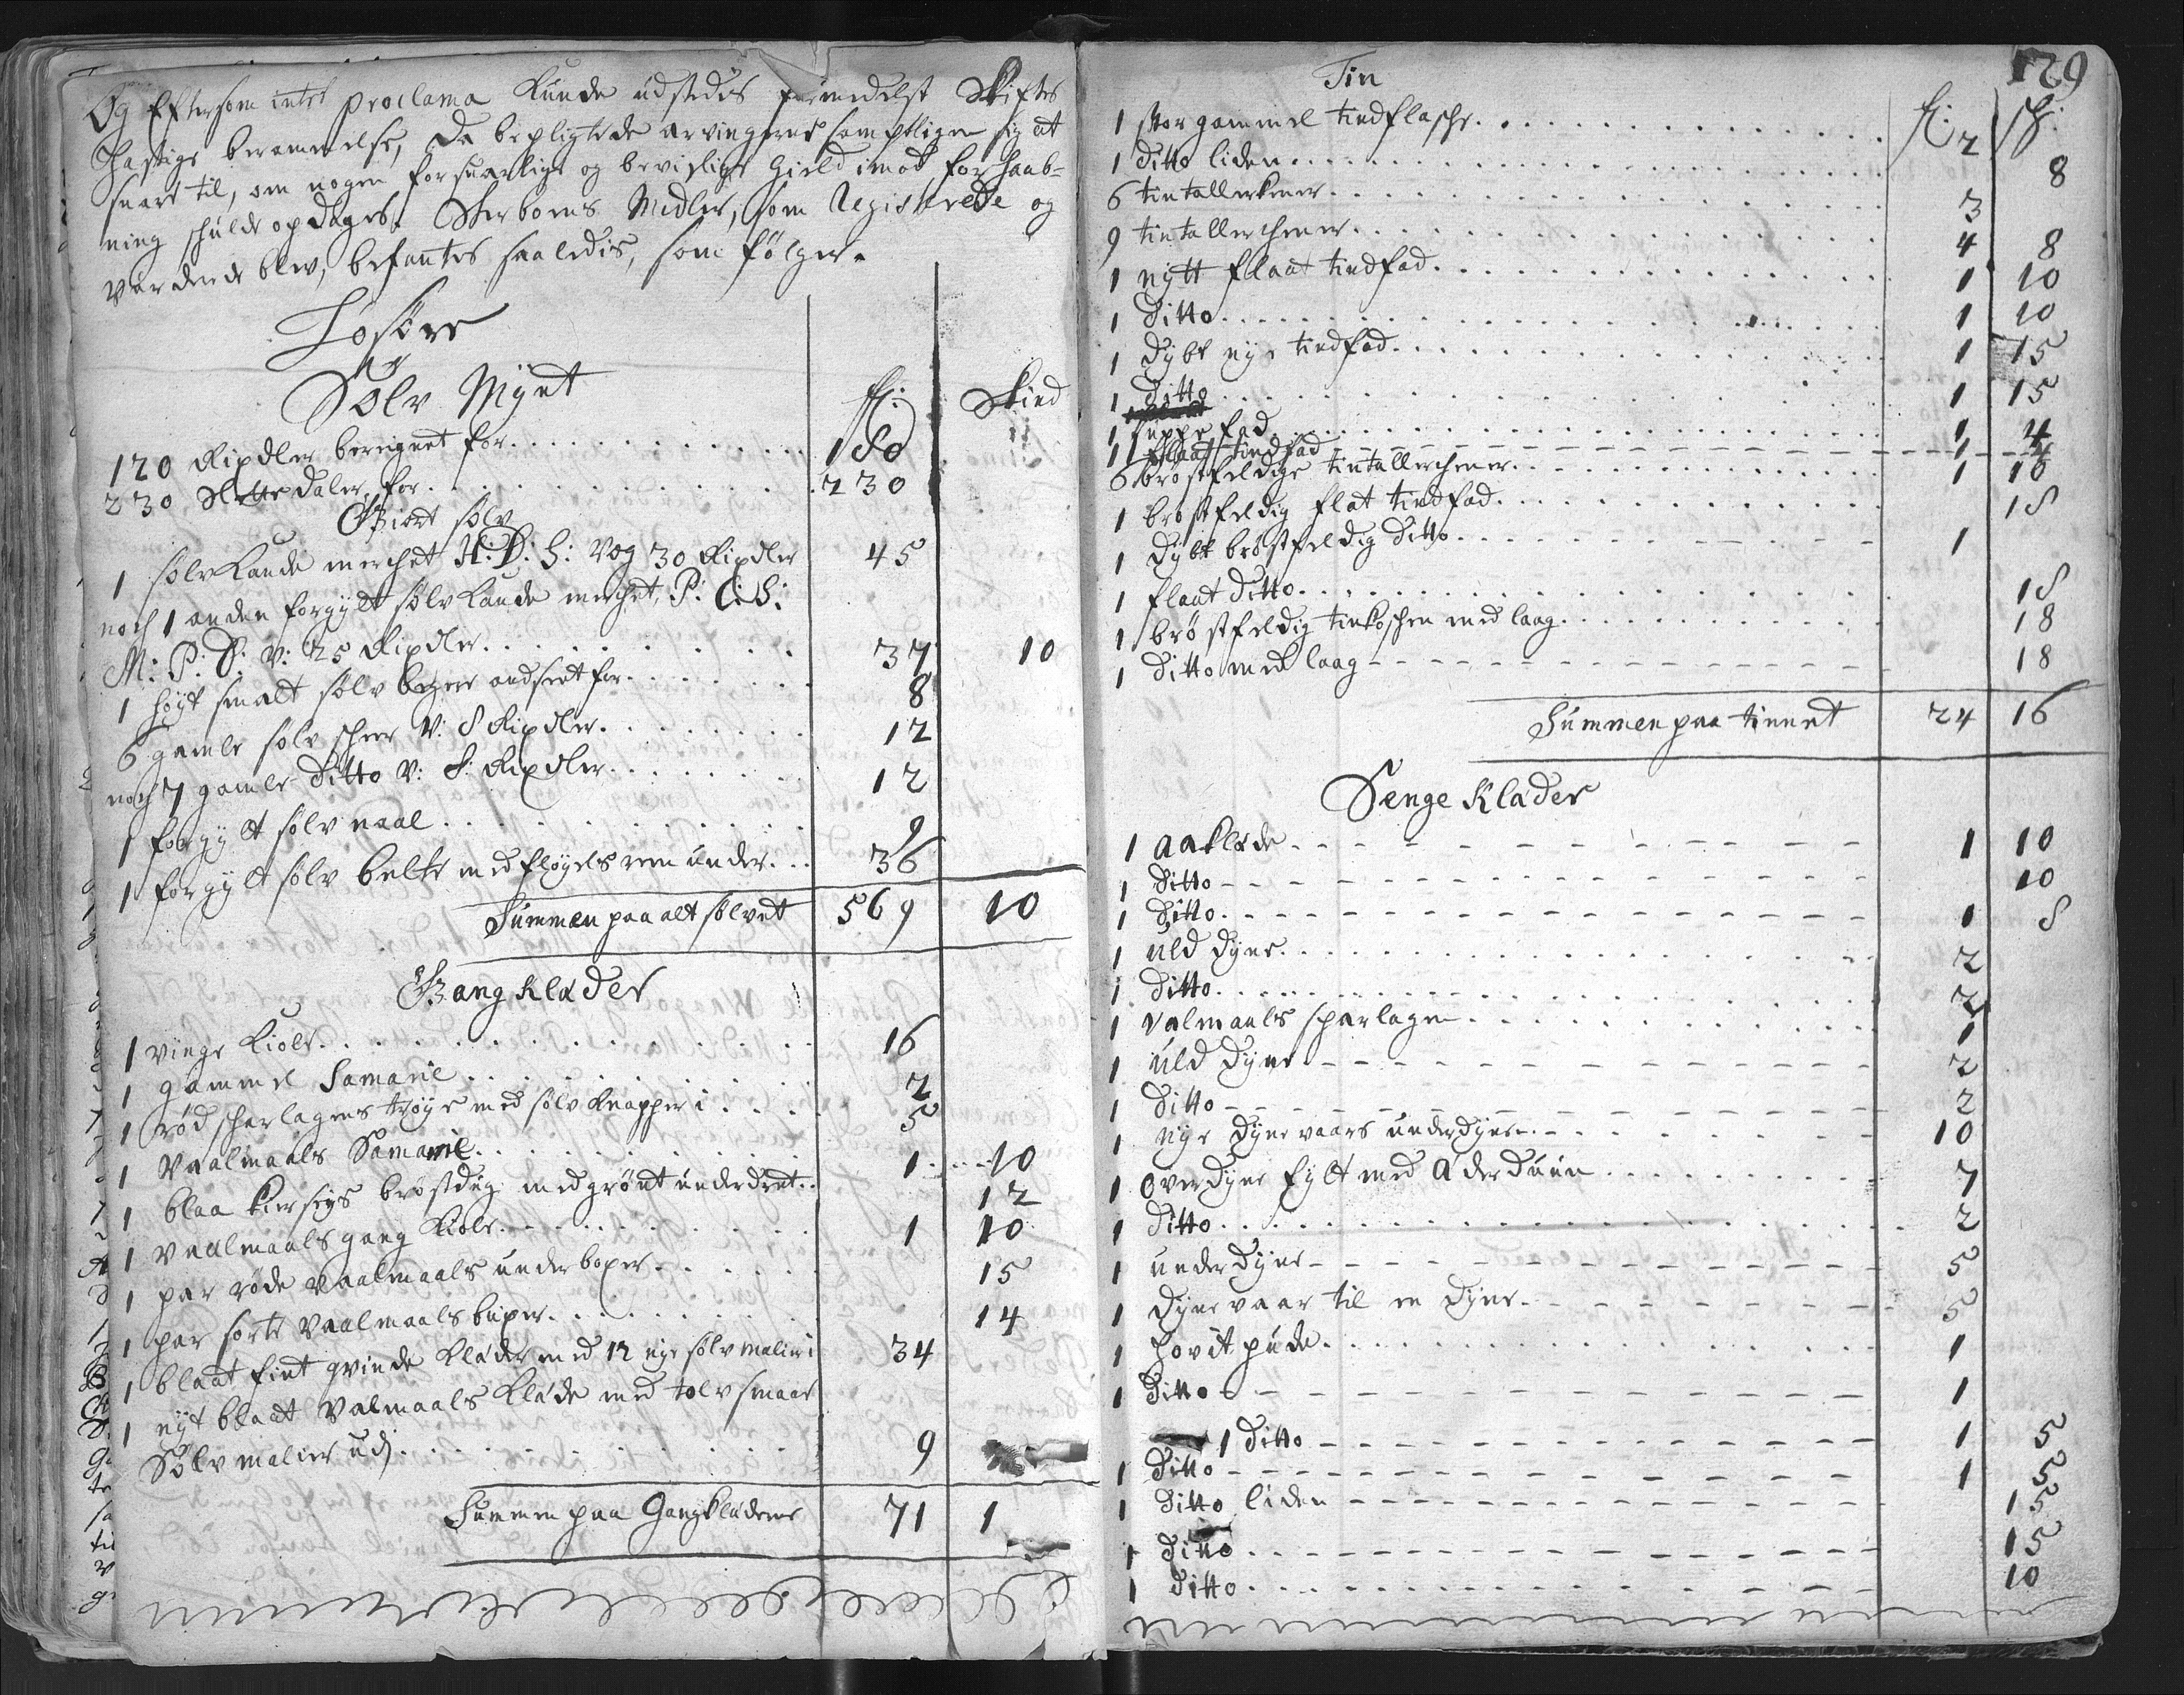 Og Eftersom intet proclama kunde udstedis formedelst Skiftes
hastige berammelse, da bepligtede arvingerne samptligen sig at
svare til, om nogen forsvarlige og bevislige Gield imod forhaab-
ning schulde opdages. Sterboens Midler, som Registrede og
varderede blev, befantes saaledis, som følger.
Løsøre
Sølv Mynt
Skind
120 Rixdler beregnet for 180
230 Slette daler for 230
Giort sølv
1 sølv Kande merchet H: P: S: vog 30 Rixdler 45
noch 1 anden forgylt sølv Kande merchet P: C: S:
M: P: D: v: 25 Rixdler 37 10
1 høyt smalt sølv beger andseet for 8
6 gamle sølv scheer v: 8 Rixdler 12
noch 7 gamle ditto v: 8: Rixdler 12
1 forgylt sølv naal 9
1 forgylt sølv belte med fløyels rem under 36
Summen paa alt sølvet 569 10
Gang Klæder
1 vinge Kiole 16
1 gammel Samarie 2
1 rød scharlagens trøye med sølv Knapper i 5
1 Vaalmaals Samarie 1 10
1 blaa Kierseys brøstdug med grønt underdret 12
1 Vaalmaals gang Kiole 1 10
1 par røde Vaalmaals under boxer 15
1 par sorte Vaalmaals buxer 14
1 blaat fint qvinde Klæder med 12 nye sølv malier i 34
1 nyt blaat Valmaals Klæde med tolv smaae
Sølv malier udj 9
Summen paa Gangklæderne 71 1
129
Tin
1 stor gammel tindflasche 2
1 ditto liden 8
6 tintallerkener 3
9 tintallerchener 4 8
1 nytt flaat tindfad 1 10
1 Ditto 1 10
1 dybt nye tindfad 1 15
1 Ditto 1 15
1 suppe fad 1 4
1 flaat tindfad 1 4
6 brøstfeldige tintallerchener 1 10
1 brøstfeldig flat tindfad 18
1 dybt brøstfeldig Ditto 1
1 flaat Ditto 18
1 brøstfeldig tinkoschen med laag 18
1 Ditto med laag 18
Summen paa tinnet 24 16
Senge Klæder
1 aaklæde 1 10
1 Ditto 10
1 Ditto 1 8
1 uld dyne 2
1 Ditto 2
1 valmaals sparlagen 1
1 uld dyne 2
1 Ditto 2
1 nye dyne vaars underdyne 10
1 overdyne fylt med æderduun 7
1 Ditto 2
1 underdyne 5
1 dynevaar til en dyne 5
1 hovit pude 1
1 Ditto 1
1 Ditto 1 5
1 Ditto 1 5
1 Ditto liden 15
1 Ditto 15
1 Ditto 10